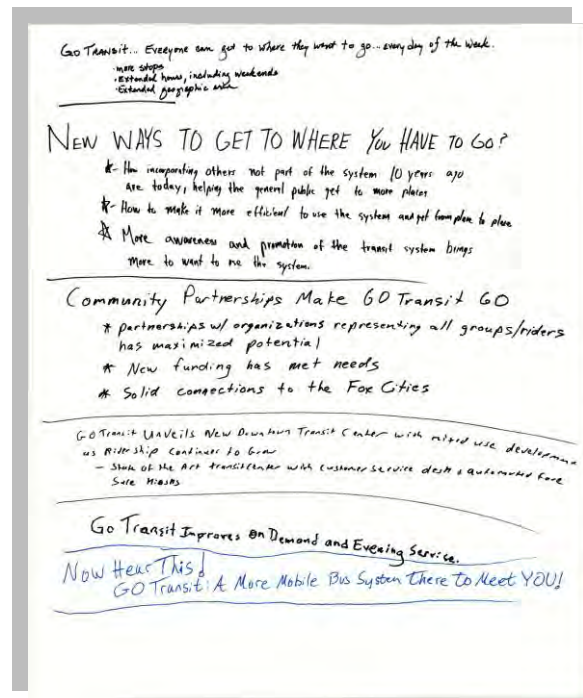 GO TRANSIT... Everyone can get to where they want to go... every day of the week.
· more stops
· Extended hours, including weekends
· Extended geographic area
NEW WAYS TO GET TO WHERE YOU HAVE TO GO?
- How incorporating others not part of the system 10 years ago
are today, helping the general public get to more places
- How to make it more efficient to use the system and get from place to place
More awareness and promotion of the transit system brings
more to want to use the system.
Community Partnerships Make GO Transit GO
* partnerships w/ organizations representing all groups/riders
has maximized potential
* New funding has met needs
* Solid connections to the Fox Cities
GO Transit Unveils New Downtown Transit Center with mixed use development
as Ridership Continues to Grow
- State of the Art transit center with customer service desk & automated fare
Sale Kiosks
Go Transit Improves On Demand and Evening Service.
Now Hear This!
GO Transit: A More Mobile Bus System There to Meet YOU!